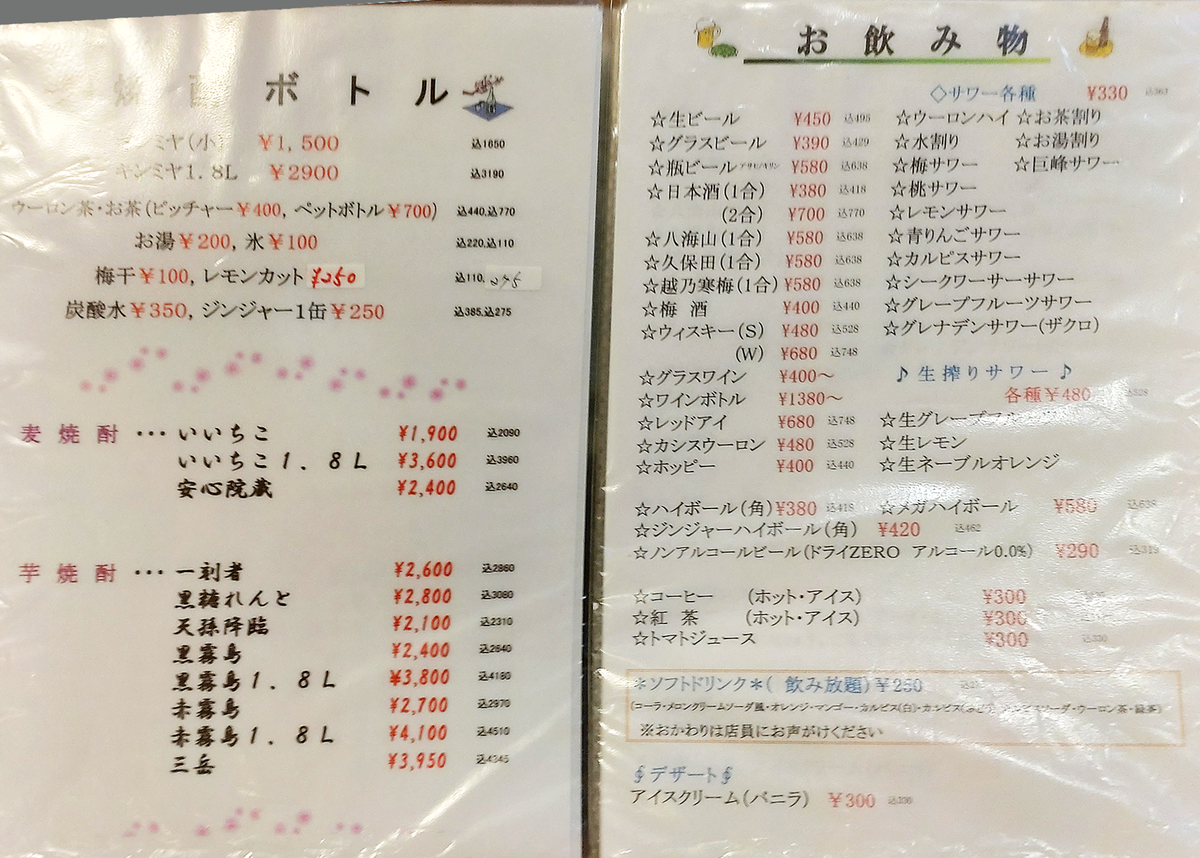 焼酎ボトル
ミヤ(小) ¥1,500 込1650
キンミヤ1.8L ¥2900 込3190
ウーロン茶・お茶(ピッチャー¥400, ペットボトル¥700) 込440,込770
お湯¥200, 氷¥100 込220,込110
梅干¥100, レモンカット ¥250 込110, 275
炭酸水¥350, ジンジャー1缶¥250 込385,込275
麦焼酎 ・・・ いいちこ ¥1,900 込2090
いいちこ1.8L ¥3,600 込3960
安心院蔵 ¥2,400 込2640
芋焼酎 ・・・ 一刻者 ¥2,600 込2860
黒糖れんと ¥2,800 込3080
天孫降臨 ¥2,100 込2310
黒霧島 ¥2,400 込2640
黒霧島1.8L ¥3,800 込4180
赤霧島 ¥2,700 込2970
赤霧島1.8L ¥4,100 込4510
三岳 ¥3,950 込4345
お飲み物
☆生ビール ¥450 込495
☆グラスビール ¥390 込429
☆瓶ビール アサヒ/キリン ¥580 込638
☆日本酒(1合) ¥380 込418
(2合) ¥700 込770
☆八海山(1合) ¥580 込638
☆久保田(1合) ¥580 込638
☆越乃寒梅(1合) ¥580 込638
☆梅酒 ¥400 込440
☆ウィスキー(S) ¥480 込528
(W) ¥680 込748
☆グラスワイン ¥400～
☆ワインボトル ¥1380～
☆レッドアイ ¥680 込748
☆カシスウーロン ¥480 込528
☆ホッピー ¥400 込440
◇サワー各種 ¥330 込363
☆ウーロンハイ ☆お茶割り
☆水割り ☆お湯割り
☆梅サワー ☆巨峰サワー
☆桃サワー
☆レモンサワー
☆青りんごサワー
☆カルピスサワー
☆シークワーサーサワー
☆グレープフルーツサワー
☆グレナデンサワー(ザクロ)
♪生搾りサワー♪
各種¥480 込528
☆生グレープフルーツ
☆生レモン
☆生ネーブルオレンジ
☆ハイボール(角) ¥380 込418 ☆メガハイボール ¥580 込638
☆ジンジャーハイボール(角) ¥420 込462
☆ノンアルコールビール(ドライZERO アルコール0.0%) ¥290 込319
☆コーヒー (ホット・アイス) ¥300
☆紅茶 (ホット・アイス) ¥300
☆トマトジュース ¥300 込330
＊ソフトドリンク＊( 飲み放題)¥250
(コーラ・メロンクリームソーダ風・オレンジ・マンゴー・カルピス(白)・カルピス ピスソーダ・ウーロン茶・緑茶)
※おかわりは店員にお声がけください
∮デザート∮
アイスクリーム(バニラ) ¥300 込330